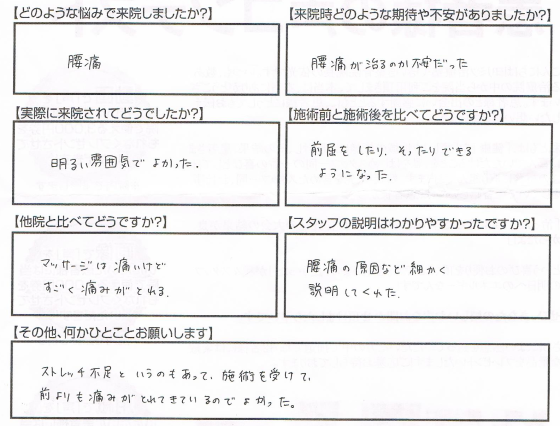 【どのような悩みで来院しましたか?】
腰痛
【来院時どのような期待や不安がありましたか?】
腰痛が治るのか不安だった
【実際に来院されてどうでしたか?】
明るい雰囲気でよかった.
【施術前と施術後を比べてどうですか?】
前屈をしたり、そったりできる
ようになった.
【他院と比べてどうですか?】
マッサージは痛いけど
すごく痛みがとれる.
【スタッフの説明はわかりやすかったですか?】
腰痛の原因など細かく
説明してくれた.
【その他、何かひとことお願いします】
ストレッチ不足というのもあって、施術を受けて、
前よりも痛みがとれてきているのでよかった。